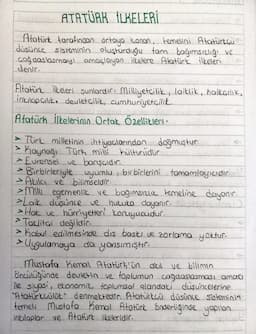 ATATÜRK İLKELERİ
Atatürk tarafından ortaya konan, temelini Atatürkçü
düşünce sisteminin oluşturduğu tam bağımsızlığı ve
çağdaşlaşmayı amaçlayan ilkelere Atatürk ilkeleri
denir.
Atatürk ilkeleri şunlardır: Milliyetçilik, laiklik, halkçılık,
inkılapçılık, devletçilik, cumhuriyetçilik.
Atatürk İlkelerinin Ortak Özellikleri
> Türk milletinin ihtiyaçlarından doğmuştur.
> Kaynağı Türk milli kültürüdür.
> Evrensel ve barışcıdır.
> Birbirleriyle uyumlu, birbirlerini tamamlayıcıdır.
> Akılcı ve bilimseldir.
> Milli egemenlik ve bağımsızlık temeline dayanır.
> Laik düşünce ve hukuka dayanır.
> Hak ve hürriyetleri koruyucudur.
> Taklitçi değildir.
> Kabul edilmesinde dış baskı ve zorlama yoktur.
> Uygulamaya da yansımıştır.
Mustafa Kemal Atatürk'ün akıl ve bilimin
öncülüğünde devletin ve toplumun çağdaşlaşması amacı
ile siyasi, ekonomik, toplumsal alandaki düşüncelerine
"Atatürkçülük" denmektedir. Atatürkçü düşünce sisteminin
temeli Mustafa Kemal Atatürk önderliğinde yapılan
inkılaplar ve Atatürk ilkeleridir.